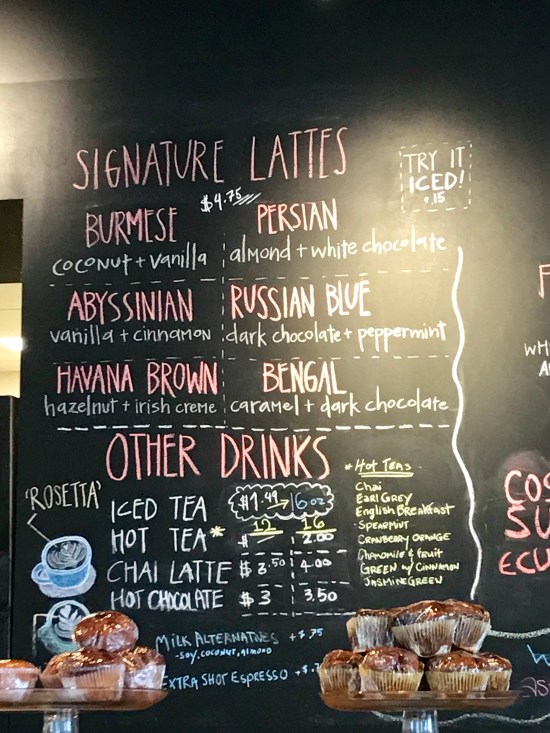 SIGNATURE LATTES
$4.75
TRY IT
ICED!
+.15
BURMESE
coconut + vanilla
PERSIAN
almond + white chocolate
ABYSSINIAN
vanilla + cinnamon
RUSSIAN BLUE
dark chocolate + peppermint
HAVANA BROWN
hazelnut + irish creme
BENGAL
caramel + dark chocolate
OTHER DRINKS
'ROSETTA'
ICED TEA $1.49 → 16 oz
12 16
HOT TEA* $ 2.00
CHAI LATTE $3.50 4.00
HOT CHOCOLATE $3 3.50
MILK ALTERNATIVES +$.75
-SOY, COCONUT, ALMOND
EXTRA SHOT ESPRESSO +$.
* HOT TEAS
Chai
EARL GREY
English Breakfast
SPEARMINT
CRANBERRY ORANGE
Chamomile & Fruit
GREEN w/ CINNAMON
JASMINE GREEN
F
WH
A
CO
SU
ECU